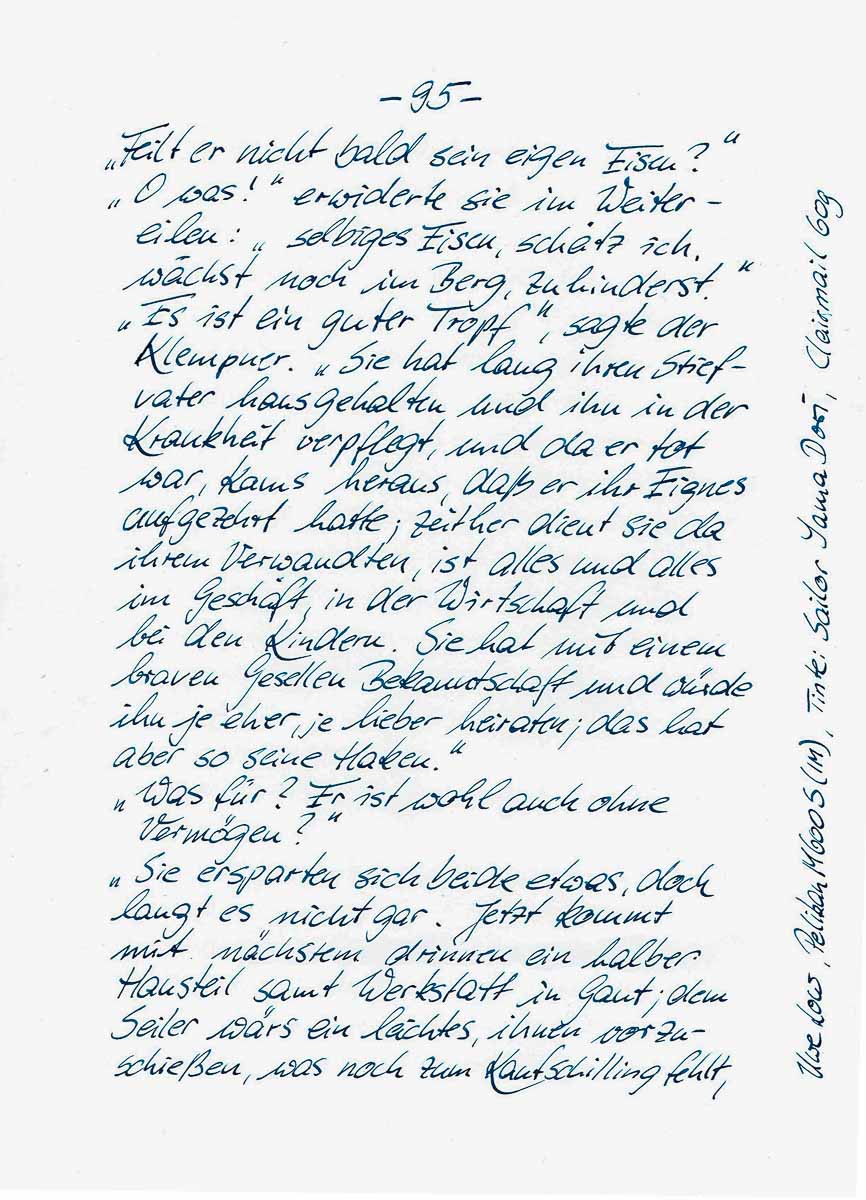 -95-
„Feilt er nicht bald sein eigen Eisen?"
„O was!" erwiderte sie im Weiter-
eilen: „selbiges Eisen, schätz ich,
wächst noch im Berg, zuhinderst."
„Es ist ein guter Tropf", sagte der
Klempner. „Sie hat lang ihren Stief-
vater hausgehalten und ihn in der
Krankheit verpflegt, und da er tot
war, kams heraus, daß er ihr Eignes
aufgezehrt hatte; zeither dient sie da
ihrem Verwandten, ist alles und alles
im Geschäft, in der Wirtschaft und
bei den Kindern. Sie hat mit einem
braven Gesellen Bekanntschaft und würde
ihn je eher, je lieber heiraten; das hat
aber so seine Haken."
„Was für? Er ist wohl auch ohne
Vermögen?"
„Sie ersparten sich beide etwas, doch
langt es nicht gar. Jetzt kommt
mit nächstem drinnen ein halber
Hausteil samt Werkstatt in Gant; dem
Seiler wärs ein leichtes, ihnen vorzu-
schießen, was noch zum Kaufschilling fehlt,
Uwe, Pelikan M600 S (IM), Tinte: Sailor Yama Dori, Clairmail 60g